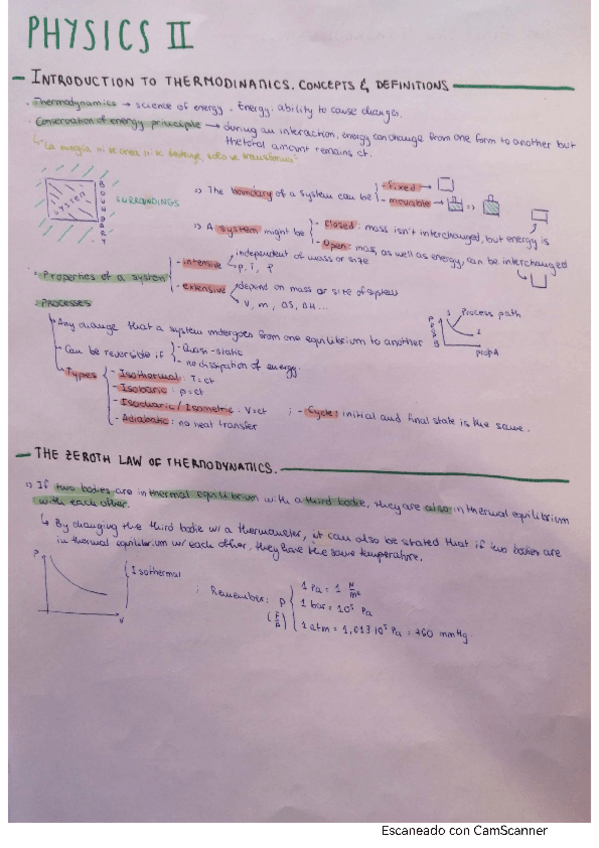 PHYSICS II
INTRODUCTION TO THERMODINAMICS. CONCEPTS & DEFINITIONS
· Thermodynamics → science of energy. Energy: ability to cause changes.
· Conservation of energy principle → during an interaction, energy can change from one form to another but
the total amount remains ct.
↳ "La energía ni se crea ni se destruye, solo se transforma"
SYSTEM
BOUNDARY
SURROUNDINGS
The boundary of a system can be
- fixed →
- movable →
A system might be
- Closed: mass isn't interchanged, but energy is
- Open: mass, as well as energy, can be interchanged
· Properties of a system
- intensive
independent of mass or size
p, T, ρ
- extensive
depend on mass or size of system
V, m, ΔS, ΔH...
· Processes
Any change that a system undergoes from one equilibrium to another
Process path
prop B
1
2
prop A
Can be reversible if
- Quasi-static
- no dissipation of energy.
Types
- Isothermal: T=ct
- Isobaric: p=ct
- Isochoric / Isometric: V=ct ; - Cycle: initial and final state is the same.
- Adiabatic: no heat transfer
THE ZEROTH LAW OF THERMODYNAMICS.
If two bodies are in thermal equilibrium with a third bodie, they are also in thermal equilibrium
with each other.
↳ By changing the third bodie w/ a thermometer, it can also be stated that if two bodies are
in thermal equilibrium w/ each other, they have the same temperature.
P
V
Isothermal
; Remember: p
(F/A)
1 Pa = 1 N/m²
1 bar = 10⁵ Pa
1 atm = 1,013·10⁵ Pa = 760 mmHg.
Escaneado con CamScanner